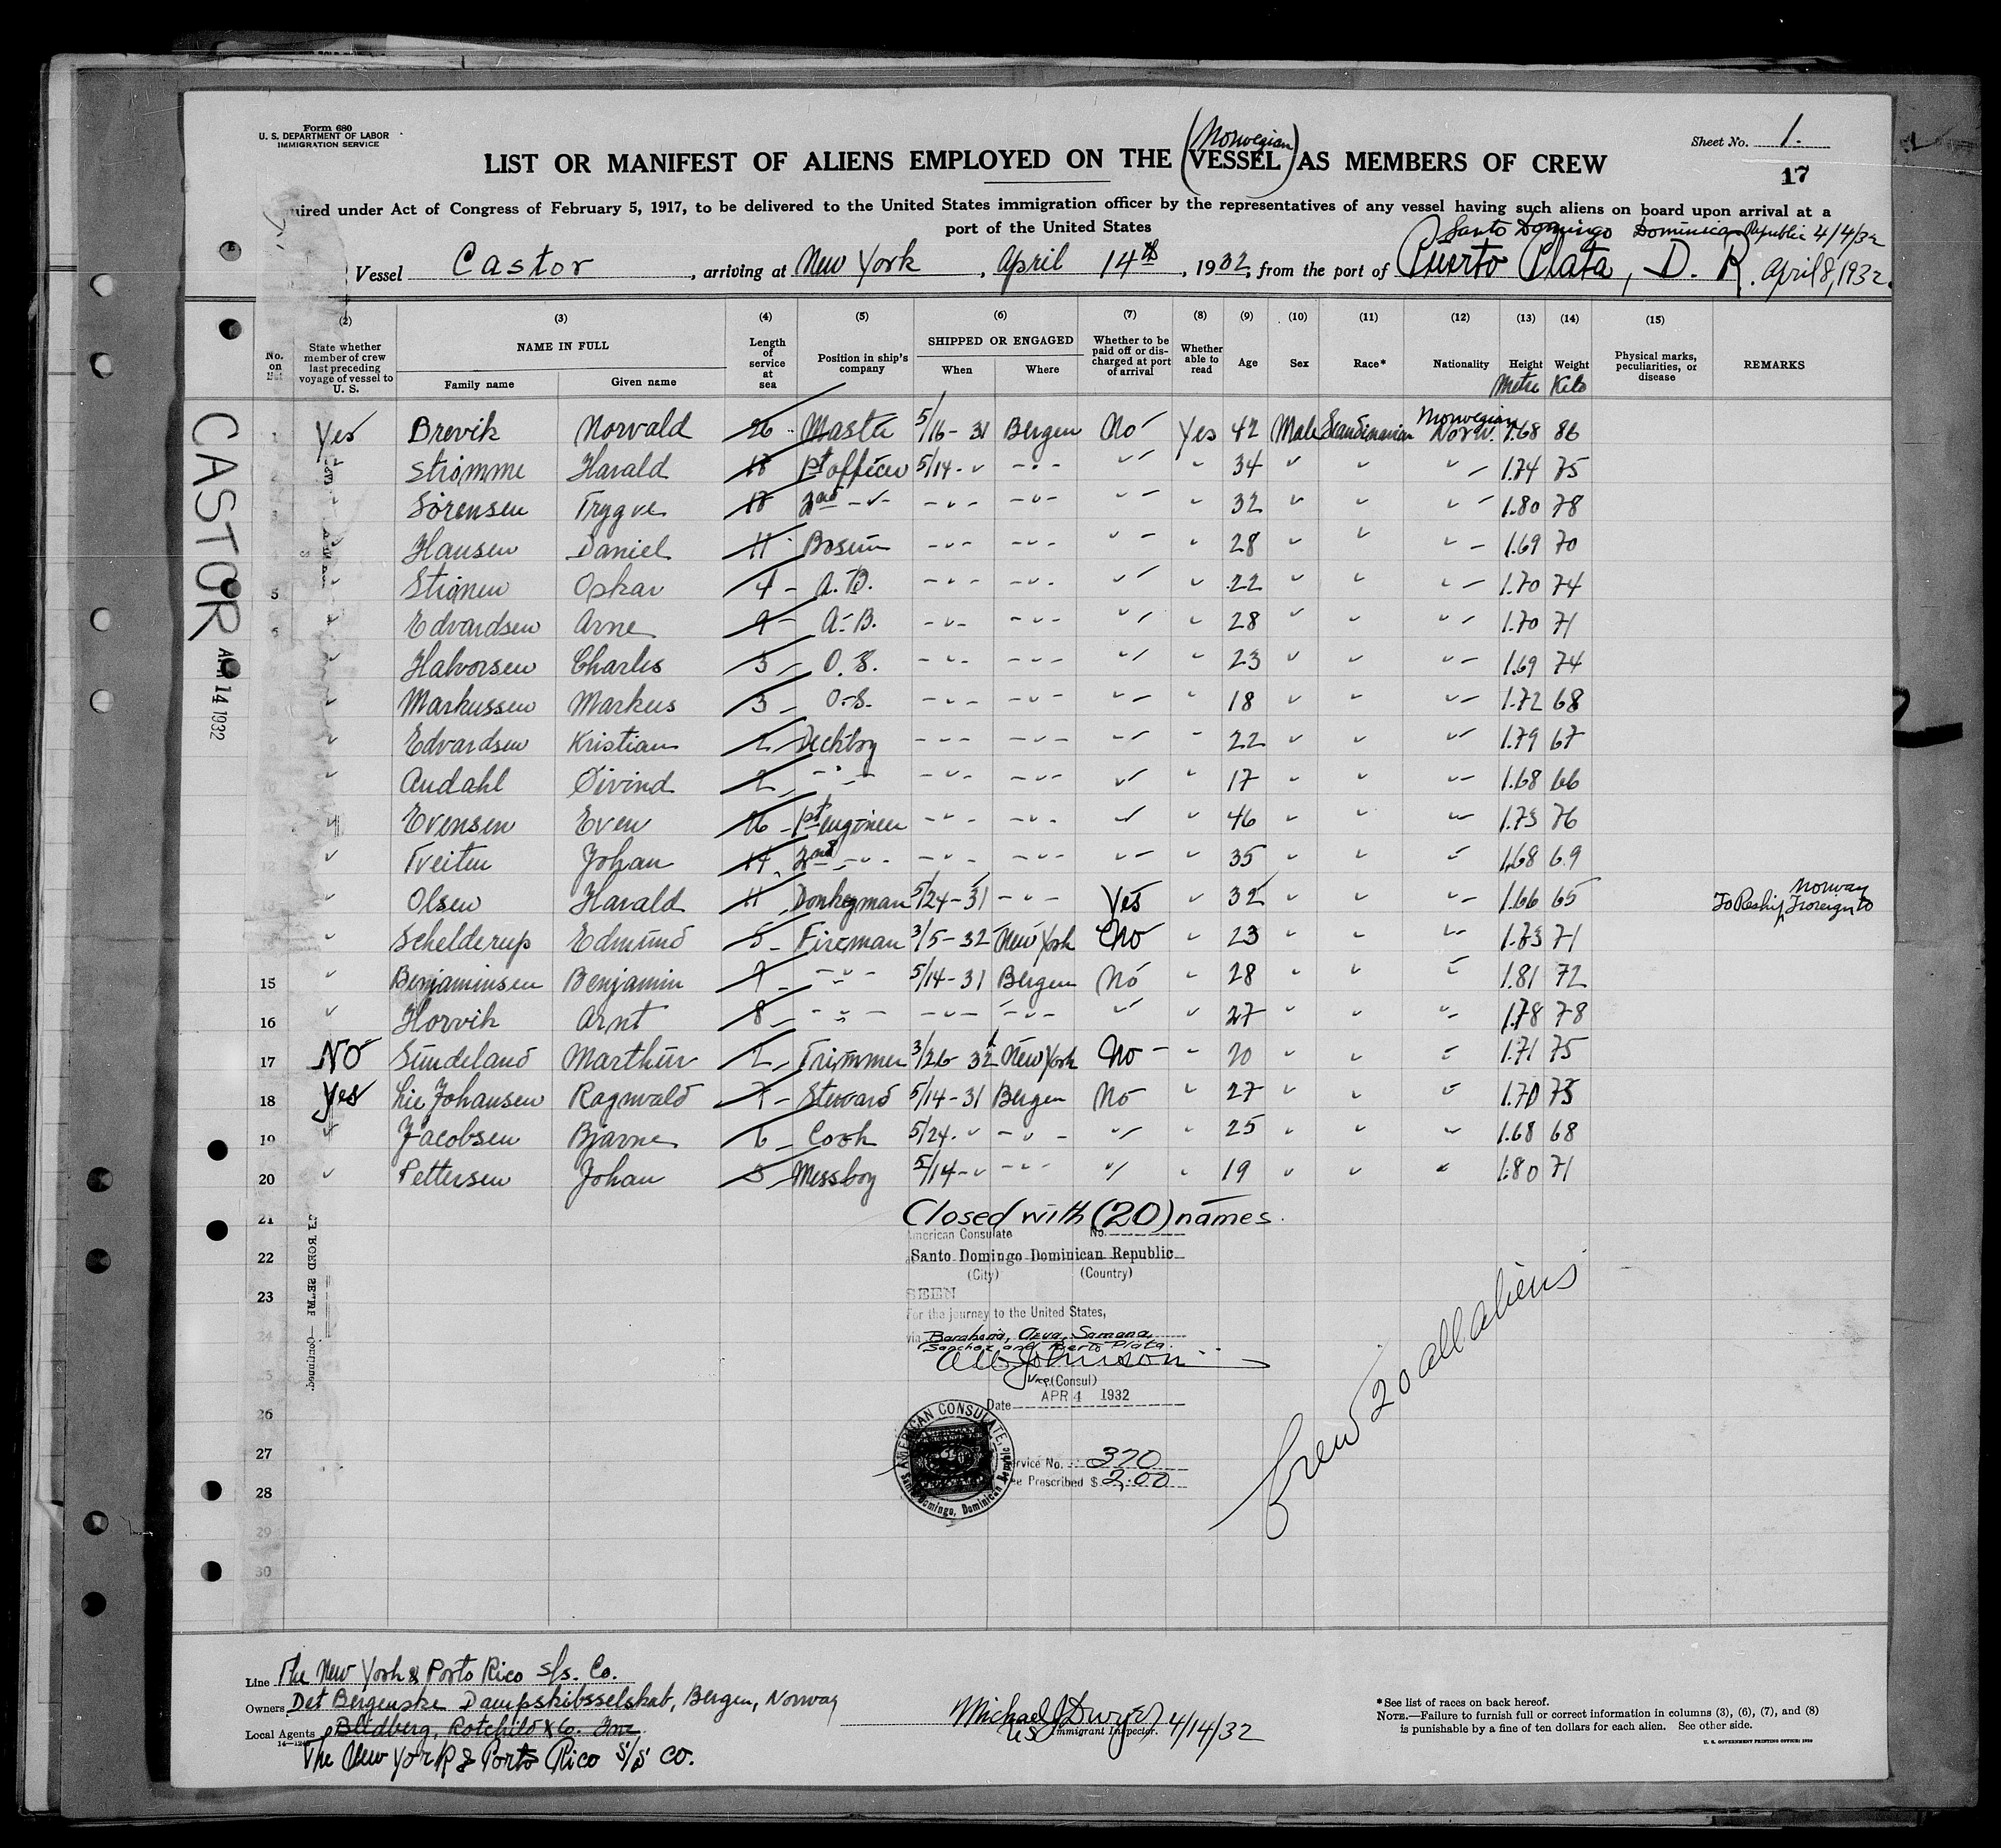 Form 680
U. S. DEPARTMENT OF LABOR
IMMIGRATION SERVICE
Sheet No. 1.
17
(Norwegian)
LIST OR MANIFEST OF ALIENS EMPLOYED ON THE VESSEL AS MEMBERS OF CREW
uired under Act of Congress of February 5, 1917, to be delivered to the United States immigration officer by the representatives of any vessel having such aliens on board upon arrival at a
port of the United States
Santo Domingo Dominican Republic 4/4/32
Vessel Castor, arriving at New York, April 14th, 1932, from the port of Puerto Plata, D. R. April 8, 1932.
(2) (3) (4) (5) (6) (7) (8) (9) (10) (11) (12) (13) (14) (15)
No. on State whether member of crew last preceding voyage of vessel to U. S. NAME IN FULL Family name Given name Length of service at sea Position in ship's company SHIPPED OR ENGAGED When Where Whether to be paid off or discharged at port of arrival Whether able to read Age Sex Race* Nationality Height Metre Weight Kilo Physical marks, peculiarities, or disease REMARKS
CASTOR
14 1932
1 Yes Brevik Norvald 26 Master 5/16-31 Bergen No Yes 42 Male Scandinavian Norwegian Norw. 1.68 86
2 " Strömme Harald 18 1st officer 5/14-" -"- " - " 34 " " " - 1.74 75
3 " Sörensen Trygve 18 2nd -"- -"- -"- " - " 32 " " " - 1.80 78
Hansen Daniel 11 Bosun -"- -"- " - " 28 " " " - 1.69 70
5 " Strönen Oskar 4 - A.B. -"- -"- " - " 22 " " " - 1.70 74
6 " Edvardsen Arne 9 - A-B. -"- -"- " - " 28 " " " - 1.70 71
" Halvorsen Charles 3 - O.S. -"- -"- " - " 23 " " " - 1.69 74
" Markussen Markus 3 - O.S. -"- -"- " - " 18 " " " - 1.72 68
" Edvardsen Kristian 2 - Deckboy -"- -"- " - " 22 " " " - 1.79 67
" Andahl Öivind 2 - -"- -"- -"- " - " 17 " " " - 1.68 66
" Evensen Even 26 - 1st engineer -"- -"- " - " 46 " " " - 1.73 76
12 " Tveiten Johan 14 - 2nd -"- -"- -"- " - " 35 " " " 1.68 69
" Olsen Harald 11 - Donkeyman 5/24-31 -"- Yes " 32 " " " - 1.66 65 To Reship Foreign to Norway
" Schelderup Edmund 5 - Fireman 3/5-32 New York No " 23 " " " - 1.73 71
15 " Benjaminsen Benjamin 9 - -"- 5/14-31 Bergen No " 28 " " " 1.81 72
16 " Horvik Arnt 8 - -"- -"- -"- " " 27 " " " 1.78 78
17 NO Sundeland Marthin 2 - Trimmer 3/26 32 New York No - " 20 " " " 1.71 75
18 Yes Lie Johansen Ragnvald 7 - Steward 5/14-31 Bergen No " 27 " " " 1.70 75
19 " Jacobsen Bjarne 6 - Cook 5/24-" -"- " - " 25 " " " 1.68 68
20 " Pettersen Johan 3 - Messboy 5/14-" -"- " " 19 " " " 1.80 71
21 Closed with (20) names.
American Consulate No.
22 Santo Domingo Dominican Republic
(City) (Country)
23 SEEN
For the journey to the United States,
24 via Barahona, Azua, Samana,
Sanchez and Puerto Plata.
Johnson
Vice (Consul)
Date APR 4 1932
26
AMERICAN CONSULATE, Santo Domingo, Dominican Republic
27 Service No. 370
28 Fee Prescribed $ 2.00
29
30
Crew 20 all aliens
Continued.
Line The New York & Porto Rico S/s. Co.
Owners Det Bergenske Dampskibsselskab, Bergen, Norway
Local Agents Blidberg, Rotchild & Co. Inc.
The New York & Porto Rico S/S Co.
Michael J Dwyer 4/14/32
U S Immigrant Inspector.
*See list of races on back hereof.
NOTE.—Failure to furnish full or correct information in columns (3), (6), (7), and (8)
is punishable by a fine of ten dollars for each alien. See other side.
U. S. GOVERNMENT PRINTING OFFICE: